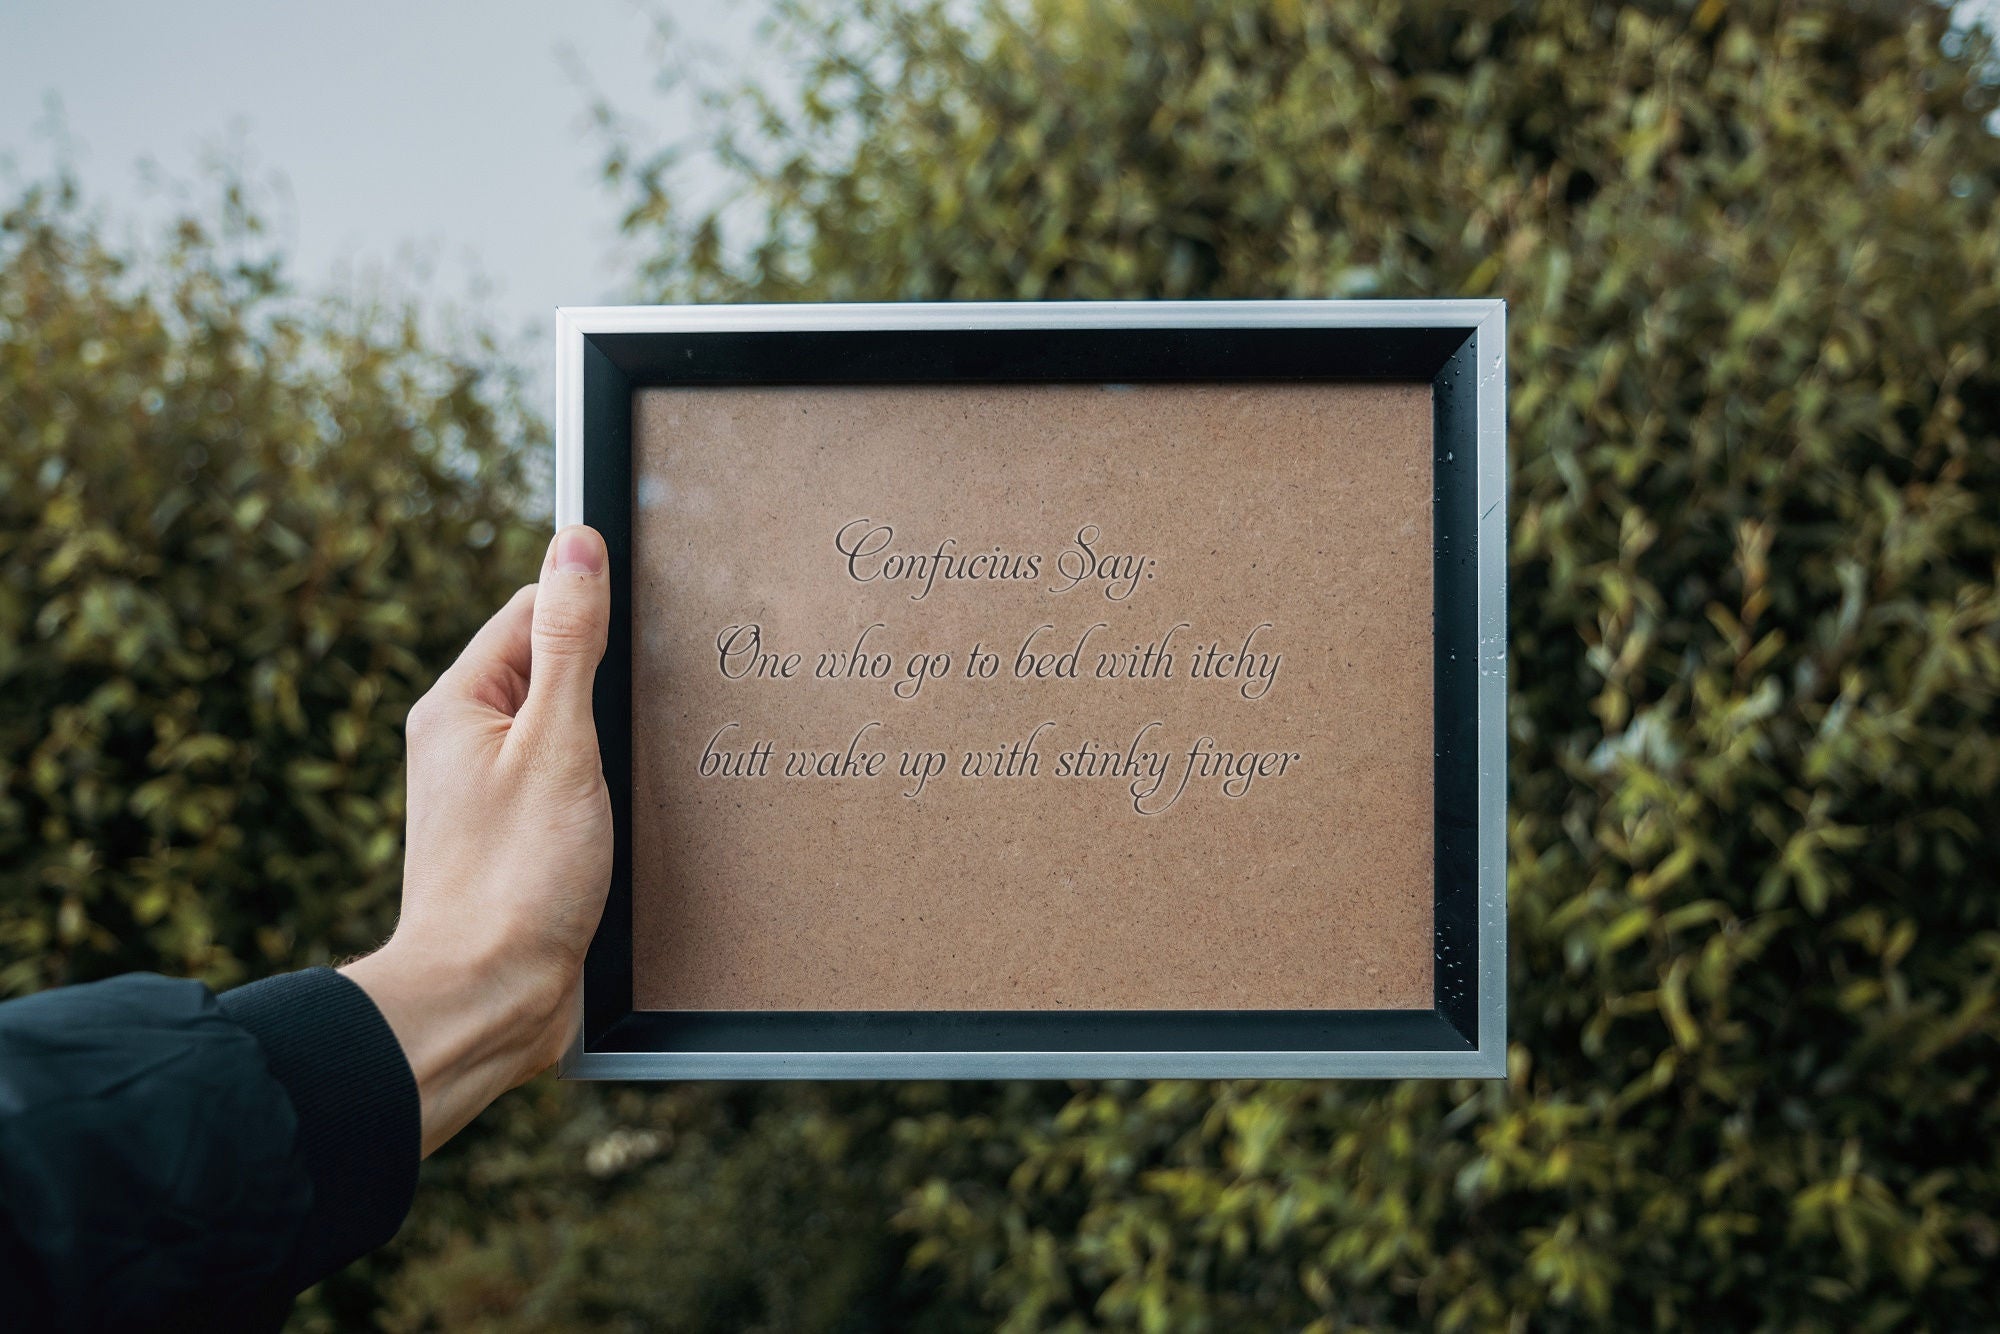 Confucius Say:
One who go to bed with itchy
butt wake up with stinky finger